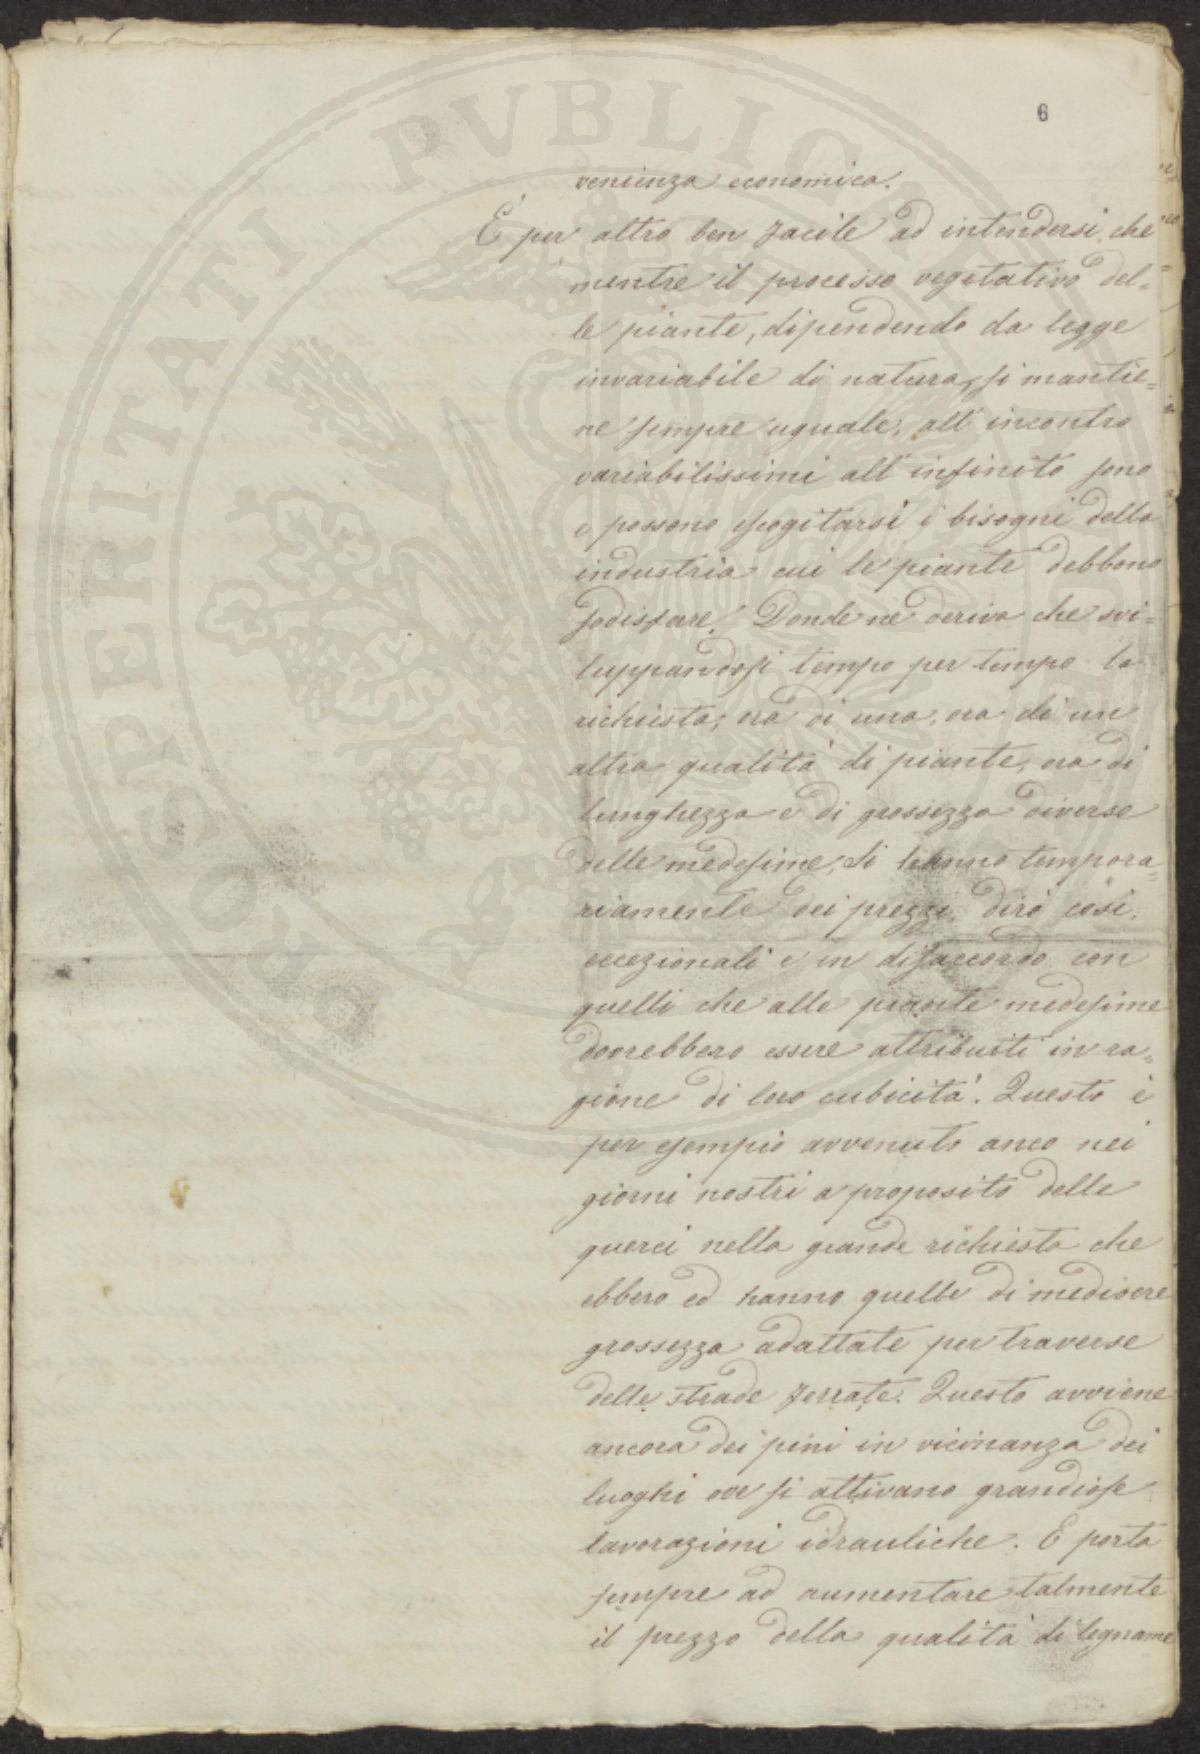 PROSPERITATI PVBLICAE
6
venienza economica.
È per altro ben facile ad intendersi che
mentre il processo vegetativo del=
le piante, dipendendo da legge
invariabile di natura, si mantie=
ne sempre uguale, all'incontro
variabilissimi all'infinito sono
e possono escogitarsi i bisogni della
industria cui le piante debbono
sodisfare. Donde ne deriva che svi=
luppandosi tempo per tempo la
richiesta, ora di una, ora di un
altra qualità di piante, ora di
lunghezza e di grossezza diverse
delle medesime, si hanno tempora=
riamente dei prezzi, dirò così,
eccezionali e in disaccordo con
quelli che alle piante medesime
dovrebbero essere attribuiti in ra=
gione di loro cubicità. Questo è
per esempio avvenuto anco nei
giorni nostri a proposito delle
querci nella grande richiesta che
ebbero ed hanno quelle di mediocre
grossezza adattate per traverse
delle strade ferrate. Questo avviene
ancora dei pini in vicinanza dei
luoghi ove si attivano grandiose
lavorazioni idrauliche. E porta
sempre ad aumentare talmente
il prezzo della qualità di legname